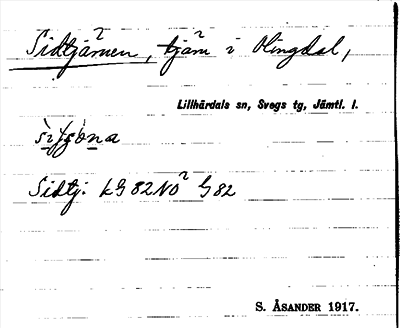 Sidtjärnen, tjärn i Olingdal,
Lillhärdals sn, Svegs tg, Jämtl. l.
Sidtj: LG 82 NO² G 82
S. ÅSANDER 1917.